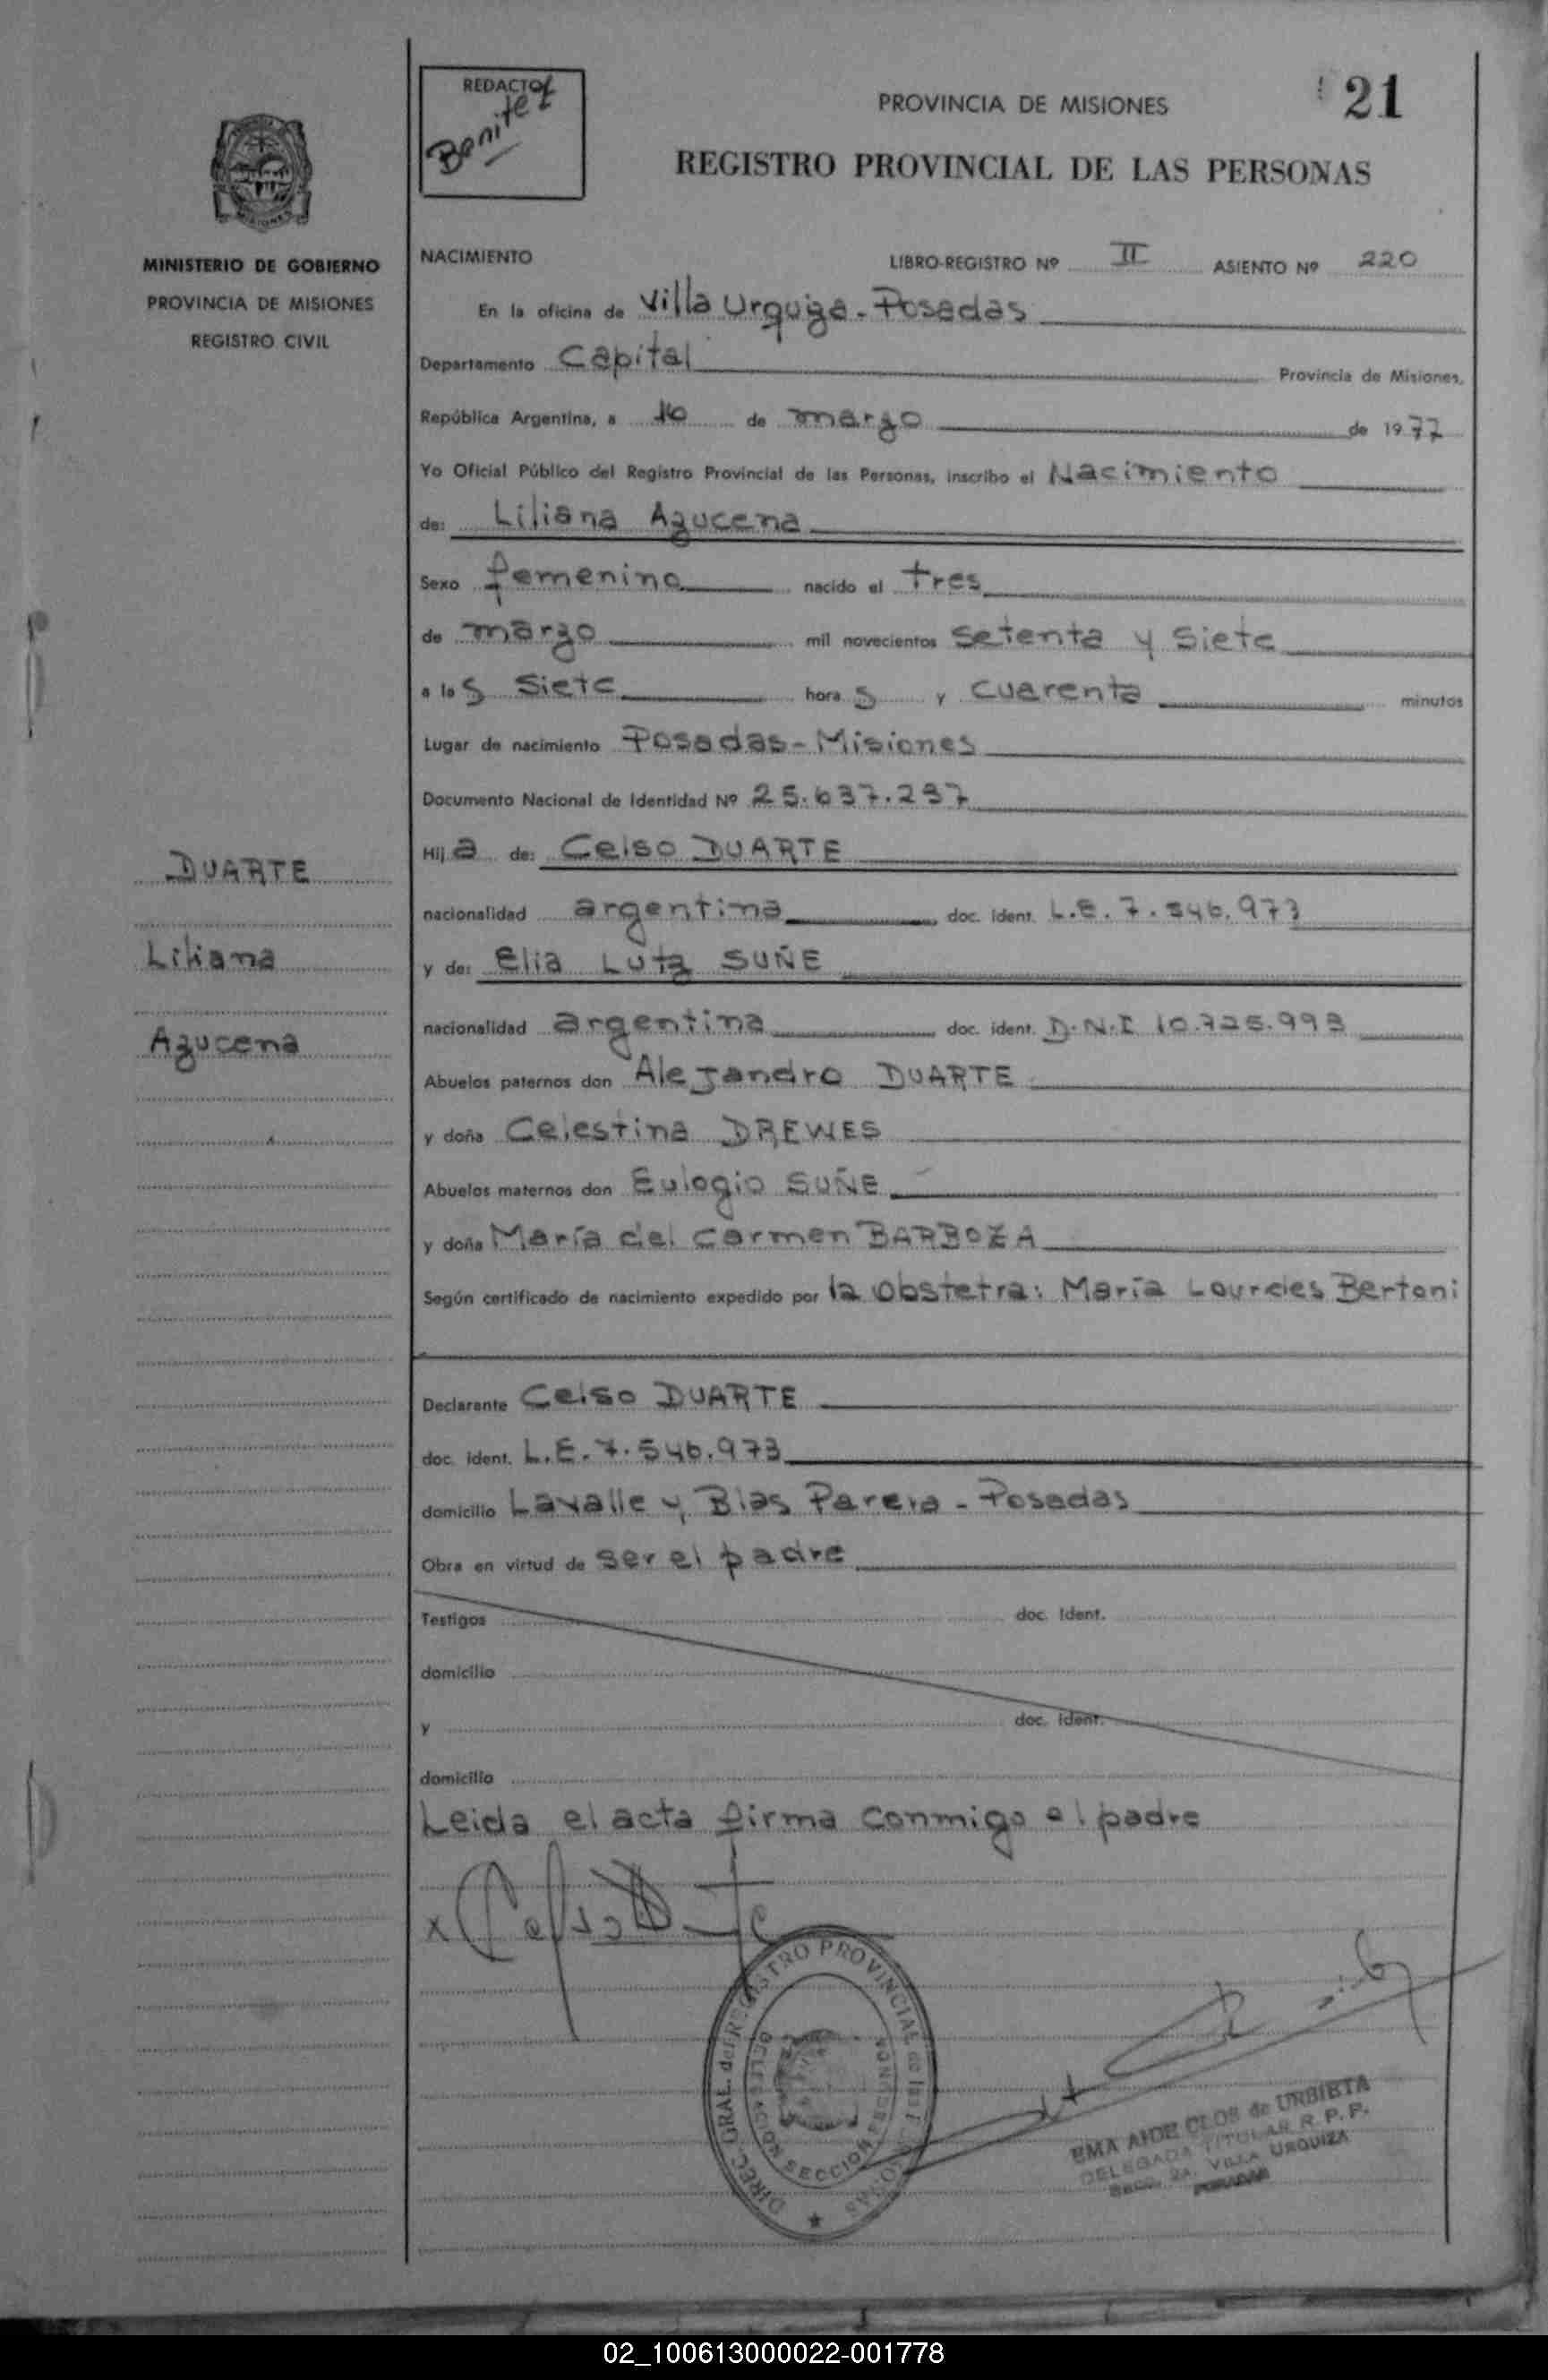 REDACTOR
Benitez
PROVINCIA DE MISIONES
21
REGISTRO PROVINCIAL DE LAS PERSONAS
MISIONES
MINISTERIO DE GOBIERNO
PROVINCIA DE MISIONES
REGISTRO CIVIL
NACIMIENTO
LIBRO-REGISTRO Nº II ASIENTO Nº 220
En la oficina de Villa Urquiza - Posadas
Departamento Capital Provincia de Misiones,
República Argentina, a 16 de marzo de 1977
Yo Oficial Público del Registro Provincial de las Personas, inscribo el Nacimiento
de: Liliana Azucena
Sexo femenino nacido el tres
de marzo mil novecientos setenta y siete
a las siete horas y cuarenta minutos
Lugar de nacimiento Posadas - Misiones
Documento Nacional de Identidad Nº 25.637.237
Hija de: Celso DUARTE
nacionalidad argentina doc. Ident. L.E. 7.546.973
y de: Elia Lutz SUÑE
nacionalidad argentina doc. ident. D.N.I 10.725.993
Abuelos paternos don Alejandro DUARTE
y doña Celestina DREWES
Abuelos maternos don Eulogio SUÑE
y doña María del Carmen BARBOZA
Según certificado de nacimiento expedido por la obstetra: María Lourdes Bertoni
Declarante Celso DUARTE
doc. ident. L.E. 7.546.973
domicilio Lavalle y Blas Parera - Posadas
Obra en virtud de ser el padre
Testigos doc. Ident.
domicilio
y doc. ident.
domicilio
Leida el acta firma conmigo el padre
DUARTE
Liliana
Azucena
x Celso Duarte
DIREC. GRAL. del REGISTRO PROVINCIAL de las PERSONAS
DELEGACION SECCION SEGUNDA
EMA AIDE CLOS de URBIETA
DELEGADA TITULAR R. P. P.
SECC. 2A. VILLA URQUIZA
POSADAS
02_100613000022-001778